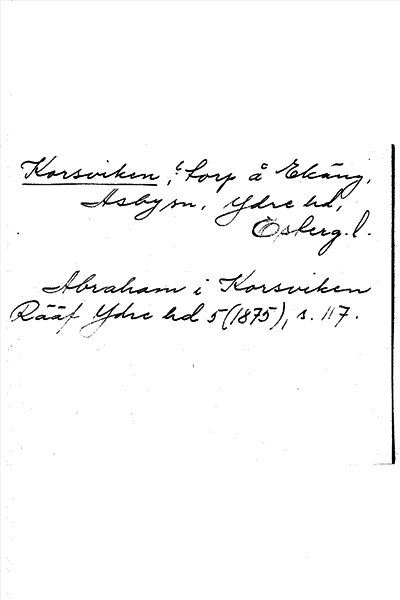 Korsviken, torp å Ekäng,
Asby sn, Ydre hd,
Österg. l.
Abraham i Korsviken
Rääf Ydre hd 5 (1875), s. 117.